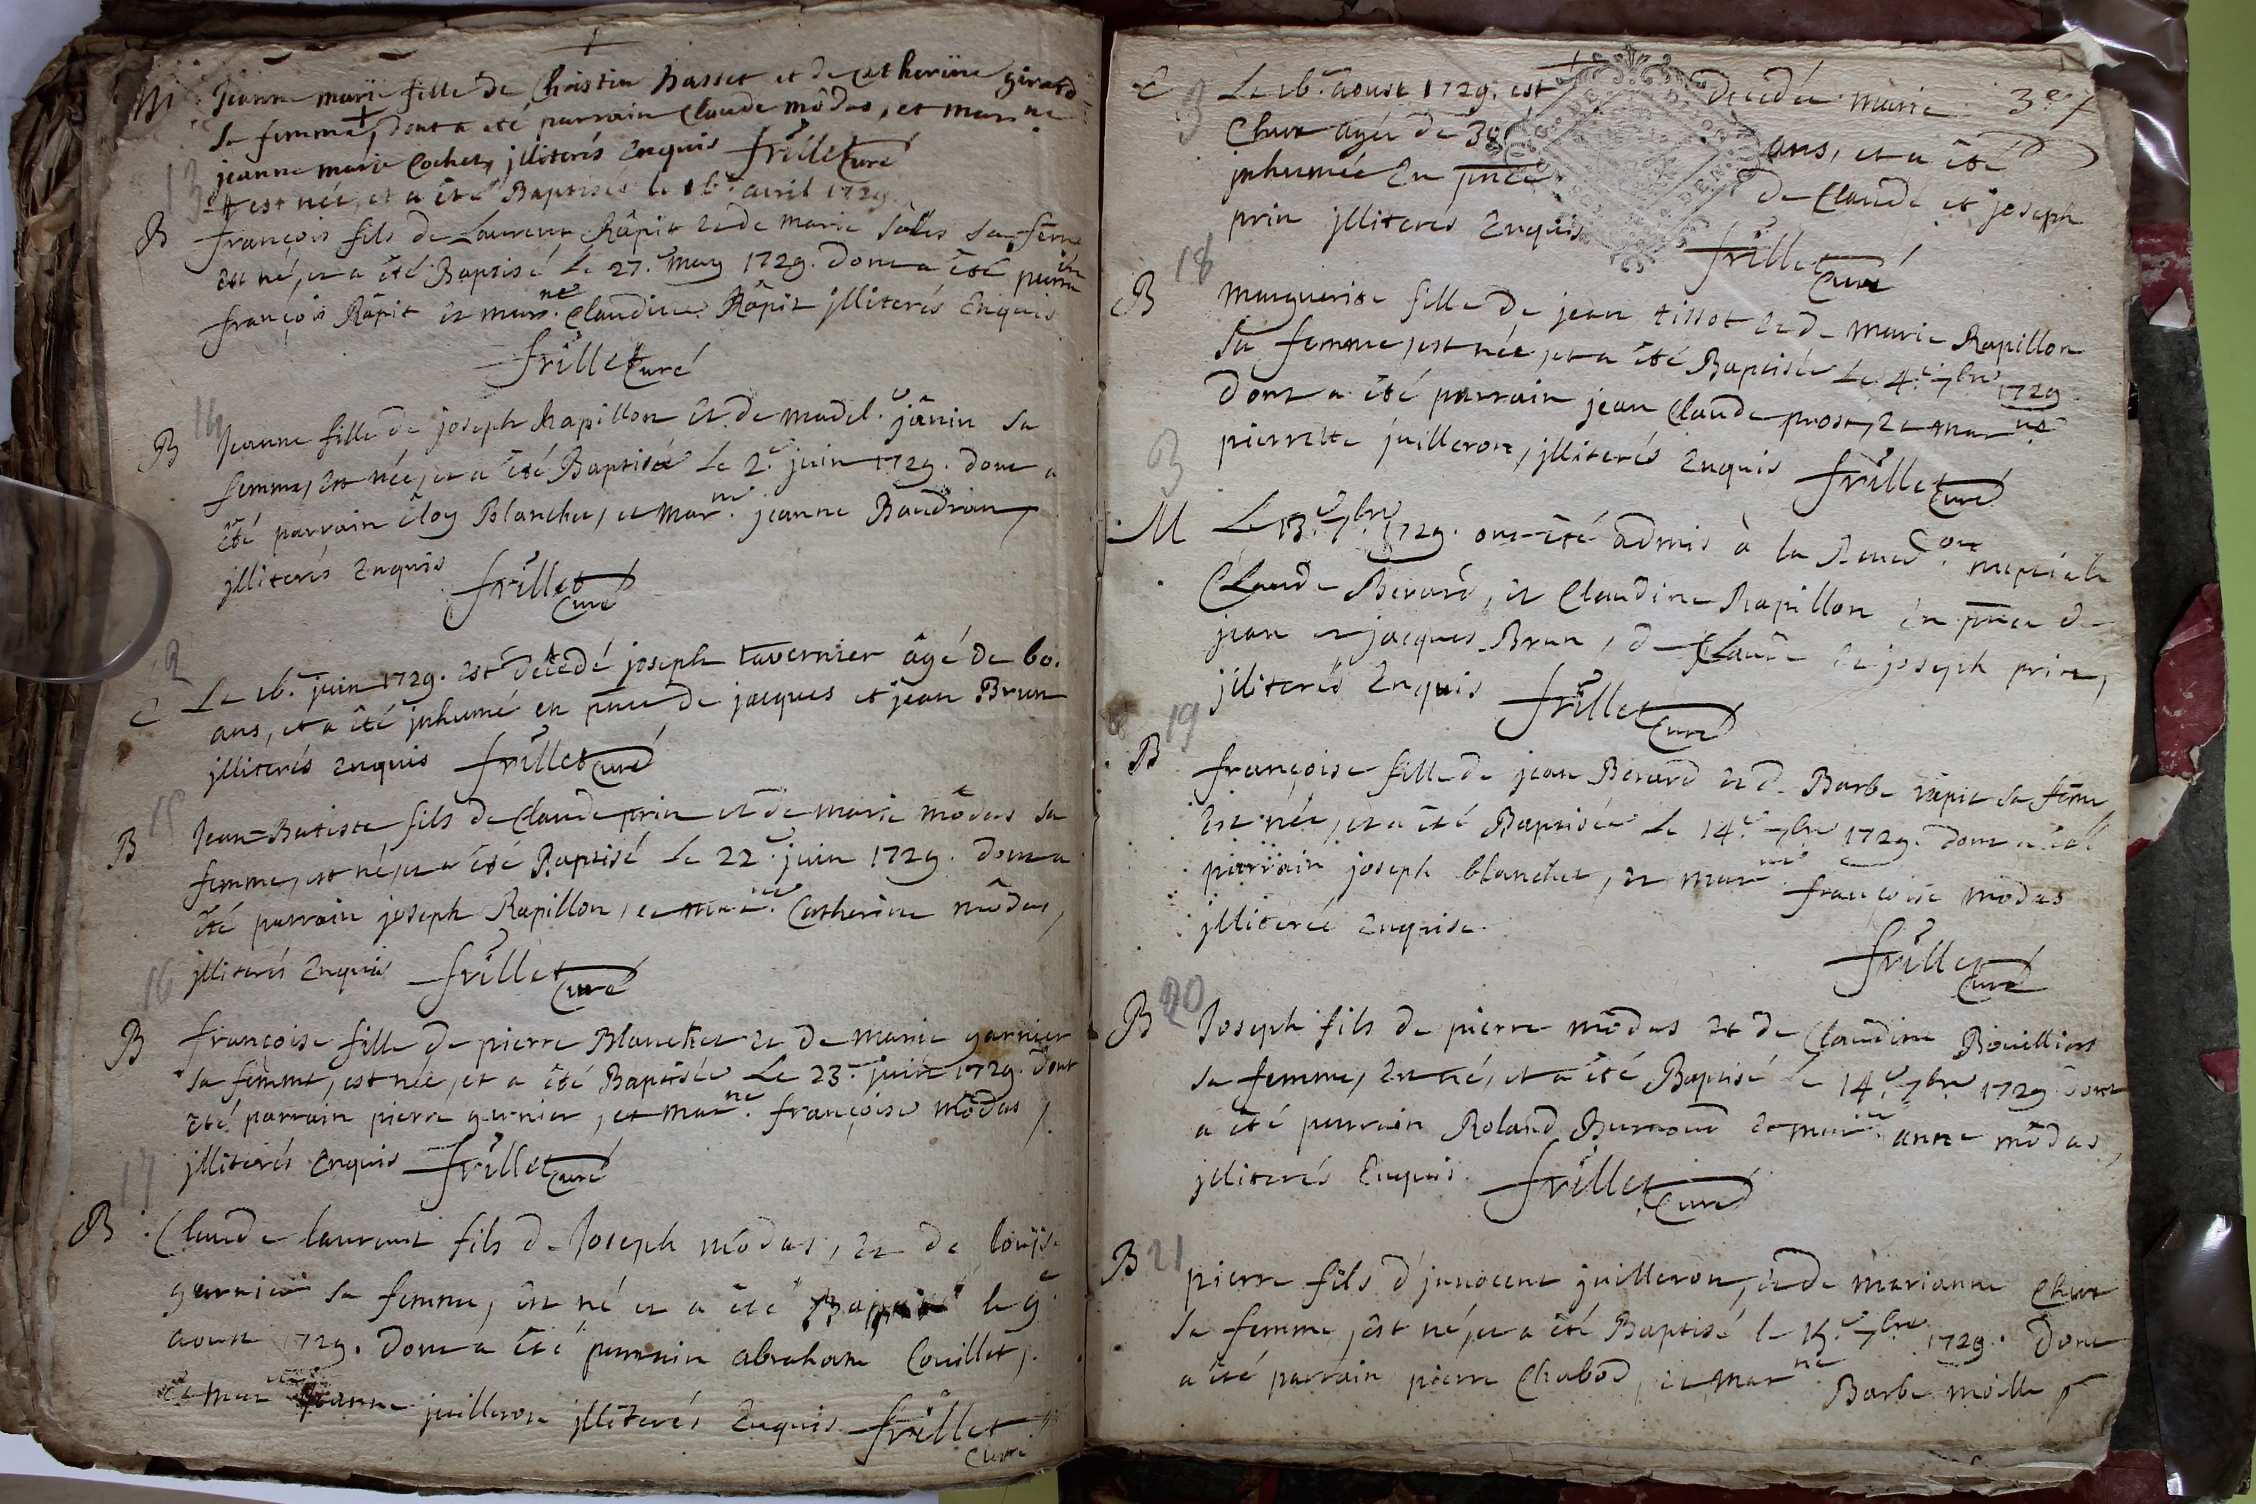 Jeanne marie fille de Christin Basset et de Catherine girard
sa femme, dont a été parrain Claude môdas, et marne
jeanne marie Cochet, jlliterés Enquis frillet Curé
13
est née, et a été Baptisée le 16. avril 1729.
B françois fils de Laurent Râpit et de marie sa feme
Est né, et a été Baptisé Le 27. may 1729. dont a été parrain
françois Râpit et marne. Claudine Râpit jlliterés Enquis
frillet Curé
14
B Jeanne fille de joseph Rapillon Et de madel.e jânin sa
femme, Est née, et a été Baptisée Le 2.e juin 1729. dont a
été parrain éloy Blanchet, et marne. jeanne Baudran,
jlliterés Enquis frillet Curé
2
Le 16. juin 1729. est décédé joseph tavernier âgé de 60.
ans, et a été jnhumé en pnce de jacques et jean Brun
jlliterés Enquis frillet Curé
15
B Jean=Batiste fils de Claude prin et de marie môdas sa
femme, est né, et a été Baptisé Le 22.e juin 1729. dont a
été parrain joseph Rapillon, et marne. Catherine môdas,
jlliterés Enquis frillet Curé
16
B françoise fille de pierre Blanchet et de marie garnier
sa femme, est née, et a été Baptisée Le 23.e juin 1729. dont
été parrain pierre garnier, et marne. françoise môdas,
jlliterés Enquis frillet Curé
17
B Claude laurent fils de Joseph môdas, et de louise
garnier sa femme, est né et a été Baptisé le 9.e
aoust 1729. dont a été parrain abraham Couillet,
et marne jeanne juilleron jlliterés Enquis frillet
Curé
Le 16. aoust 1729. est décédée marie 3e 7
3
Chuat agée de 30 ans, et a été
jnhumée En pnce de Claude et joseph
prin jlliterés Enquis frillet Curé
18
B marguerite fille de jean tissot et de marie Rapillon
sa femme, est née, et a été Baptisée Le 4.e 7bre 1729.
dont a été parrain jean Claude prost, et marne
pierrette juilleron, jlliterés Enquis frillet Curé
3
M Le 13.e 7bre 1729. ont été admis à la Bened.on nuptiale
Claude Berard, et Claudine Rapillon En pnce de
jean et jacques Brun, de Claude et joseph prin,
jlliterés Enquis frillet Curé
19
B françoise fille de jean Berard et de Barbe râpit sa feme
Est née, et a été Baptisée Le 14.e 7bre 1729. dont a été
parrain joseph blanchet, et marne françoise modas
jlliterée Enquise.
frillet Curé
20
B Joseph fils de pierre môdas et de Claudine Bouilliers
sa femme, Est né, et a été Baptisé Le 14.e 7bre 1729 dont
a été parrain Roland Burnoud et marne anne môdas,
jlliterés Enquis. frillet Curé
B 21 pierre fils d'jnnocent juilleron, et de marianne Chuat
sa femme, est né, et a été Baptisé le 15.e 7bre 1729. dont
a été parrain pierre Chabod, et marne Barbe moille